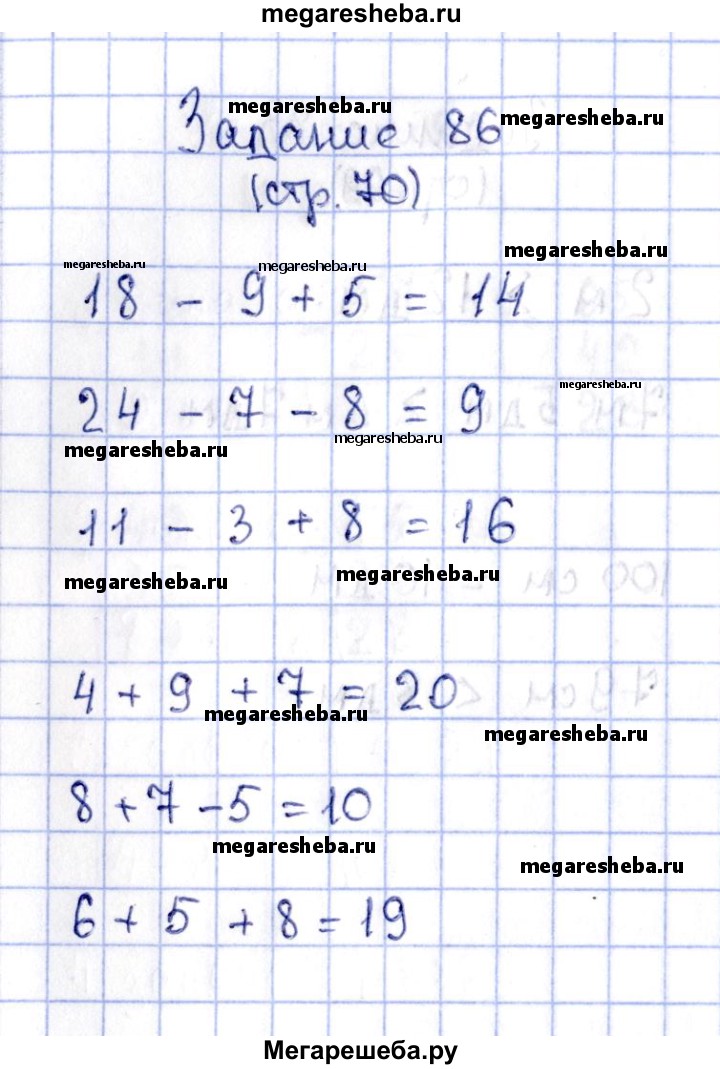 megaresheba.ru
megaresheba.ru
megaresheba.ru
Задание 86
(стр. 70)
megaresheba.ru
megaresheba.ru
megaresheba.ru
18 - 9 + 5 = 14
megaresheba.ru
24 - 7 - 8 = 9
megaresheba.ru
megaresheba.ru
11 - 3 + 8 = 16
megaresheba.ru
megaresheba.ru
4 + 9 + 7 = 20
megaresheba.ru
megaresheba.ru
8 + 7 - 5 = 10
megaresheba.ru
megaresheba.ru
6 + 5 + 8 = 19
Мегарешеба.ру